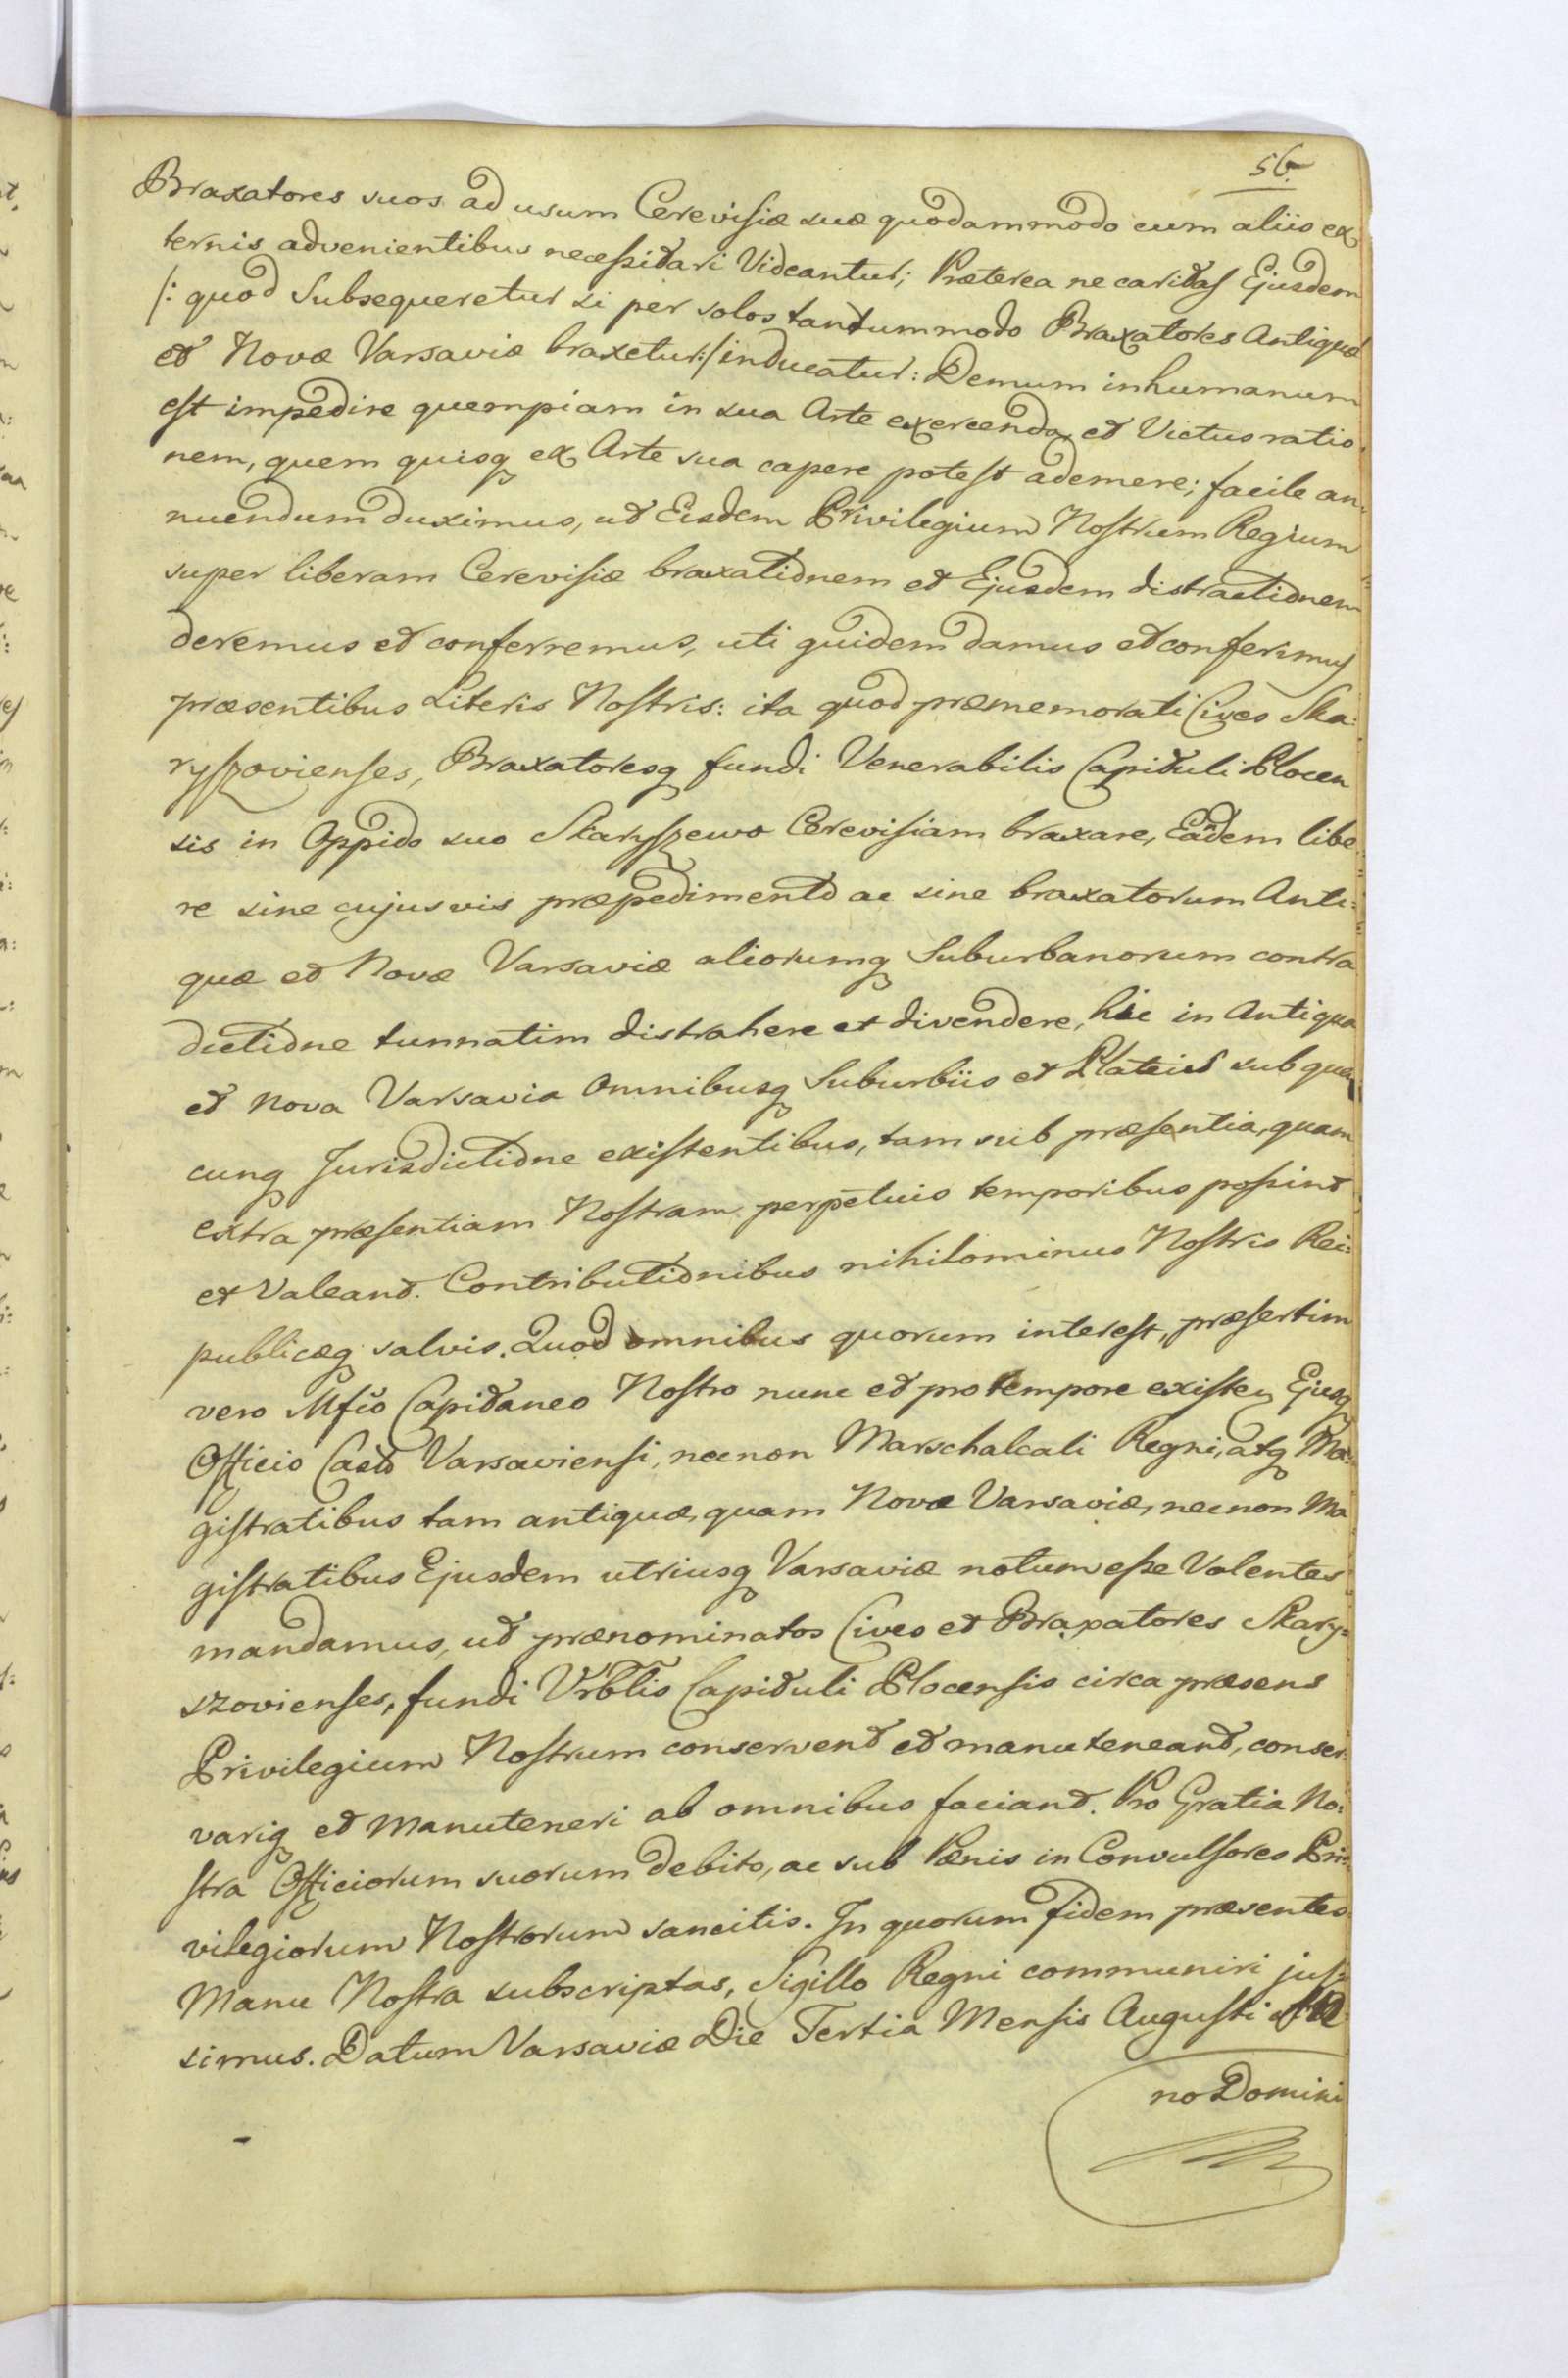 56.
Braxatores suos ad usum Cerevisiæ suæ quodammodo cum aliis ex
ternis advenientibus necessitari Videantur; Præterea ne caritas Ejusdem
/: quod Subsequeretur si per solos tantummodo Braxatores Antiquæ
et Novæ Varsaviæ braxetur:/ inducatur: Demum inhumanum
est impedire quempiam in sua Arte exercenda, et Victus ratio-
nem, quem quisq ex Arte sua capere potest ademere; facile an-
nuendum duximus, ut Eisdem Privilegium Nostrum Regium
super liberam Cerevisiæ braxationem et Ejusdem distractionem
daremus et conferremus, uti quidem damus et conferimus
præsentibus Literis Nostris: ita quod præmemorati Cives Ska:
ryszovienses, Braxatoresq fundi Venerabilis Capituli Plocen
sis in Oppido suo Skaryszewo Cerevisiam braxare, Eãdem libe:
re sine cujusvis præpedimento ac sine braxatorum Anti:
quæ et Novæ Varsaviæ aliorumq Suburbanorum contra
dictione tunnatim distrahere et divendere, hic in Antiqua
et Nova Varsavia Omnibusq Suburbiis et Plateis sub qua
cunq Jurisdictione existentibus, tam sub præsentia, quam
extra præsentiam Nostram perpetuis temporibus possint
et Valeant. Contributionibus nihilominus Nostris Rei:
publicæq salvis. Quod omnibus quorum interest, præsertim
vero Mfco Capitaneo Nostro nunc et pro tempore existen Ejusq
Officio Casto Varsaviensi, necnon Marschalcali Regni, atq Ma:
gistratibus tam antiquæ, quam Novæ Varsaviæ, necnon Ma
gistratibus Ejusdem utriusq Varsaviæ notum esse Volentes
mandamus, ut prænominatos Cives et Braxatores Skary=
szovienses, fundi Vrblis Capituli Plocensis circa præsens
Privilegium Nostrum conservent et manuteneant, conser:
variq et Manuteneri ab omnibus faciant. Pro Gratia No:
stra Officiorum suorum debito, ac sub Pænis in Convulsores Pri=
vilegiorum Nostrorum sancitis. In quorum fidem præsentes
Manu Nostra subscriptas, Sigillo Regni communiri jus=
simus. Datum Varsaviæ Die Tertia Mensis Augusti An
no Domini